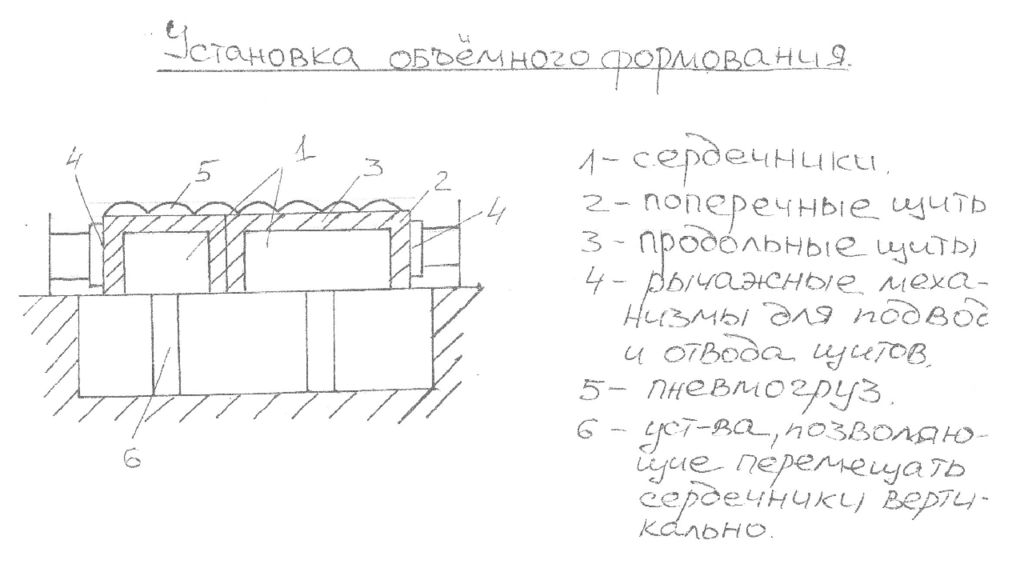 Установка объёмного формования.
4 5 1 3 2 4
1 - сердечники.
2 - поперечные щиты
3 - продольные щиты
4 - рычажные меха-
низмы для подвод
и отвода щитов.
5 - пневмогруз.
6 - уст-ва, позволяю-
щие перемещать
сердечники верти-
кально.
6